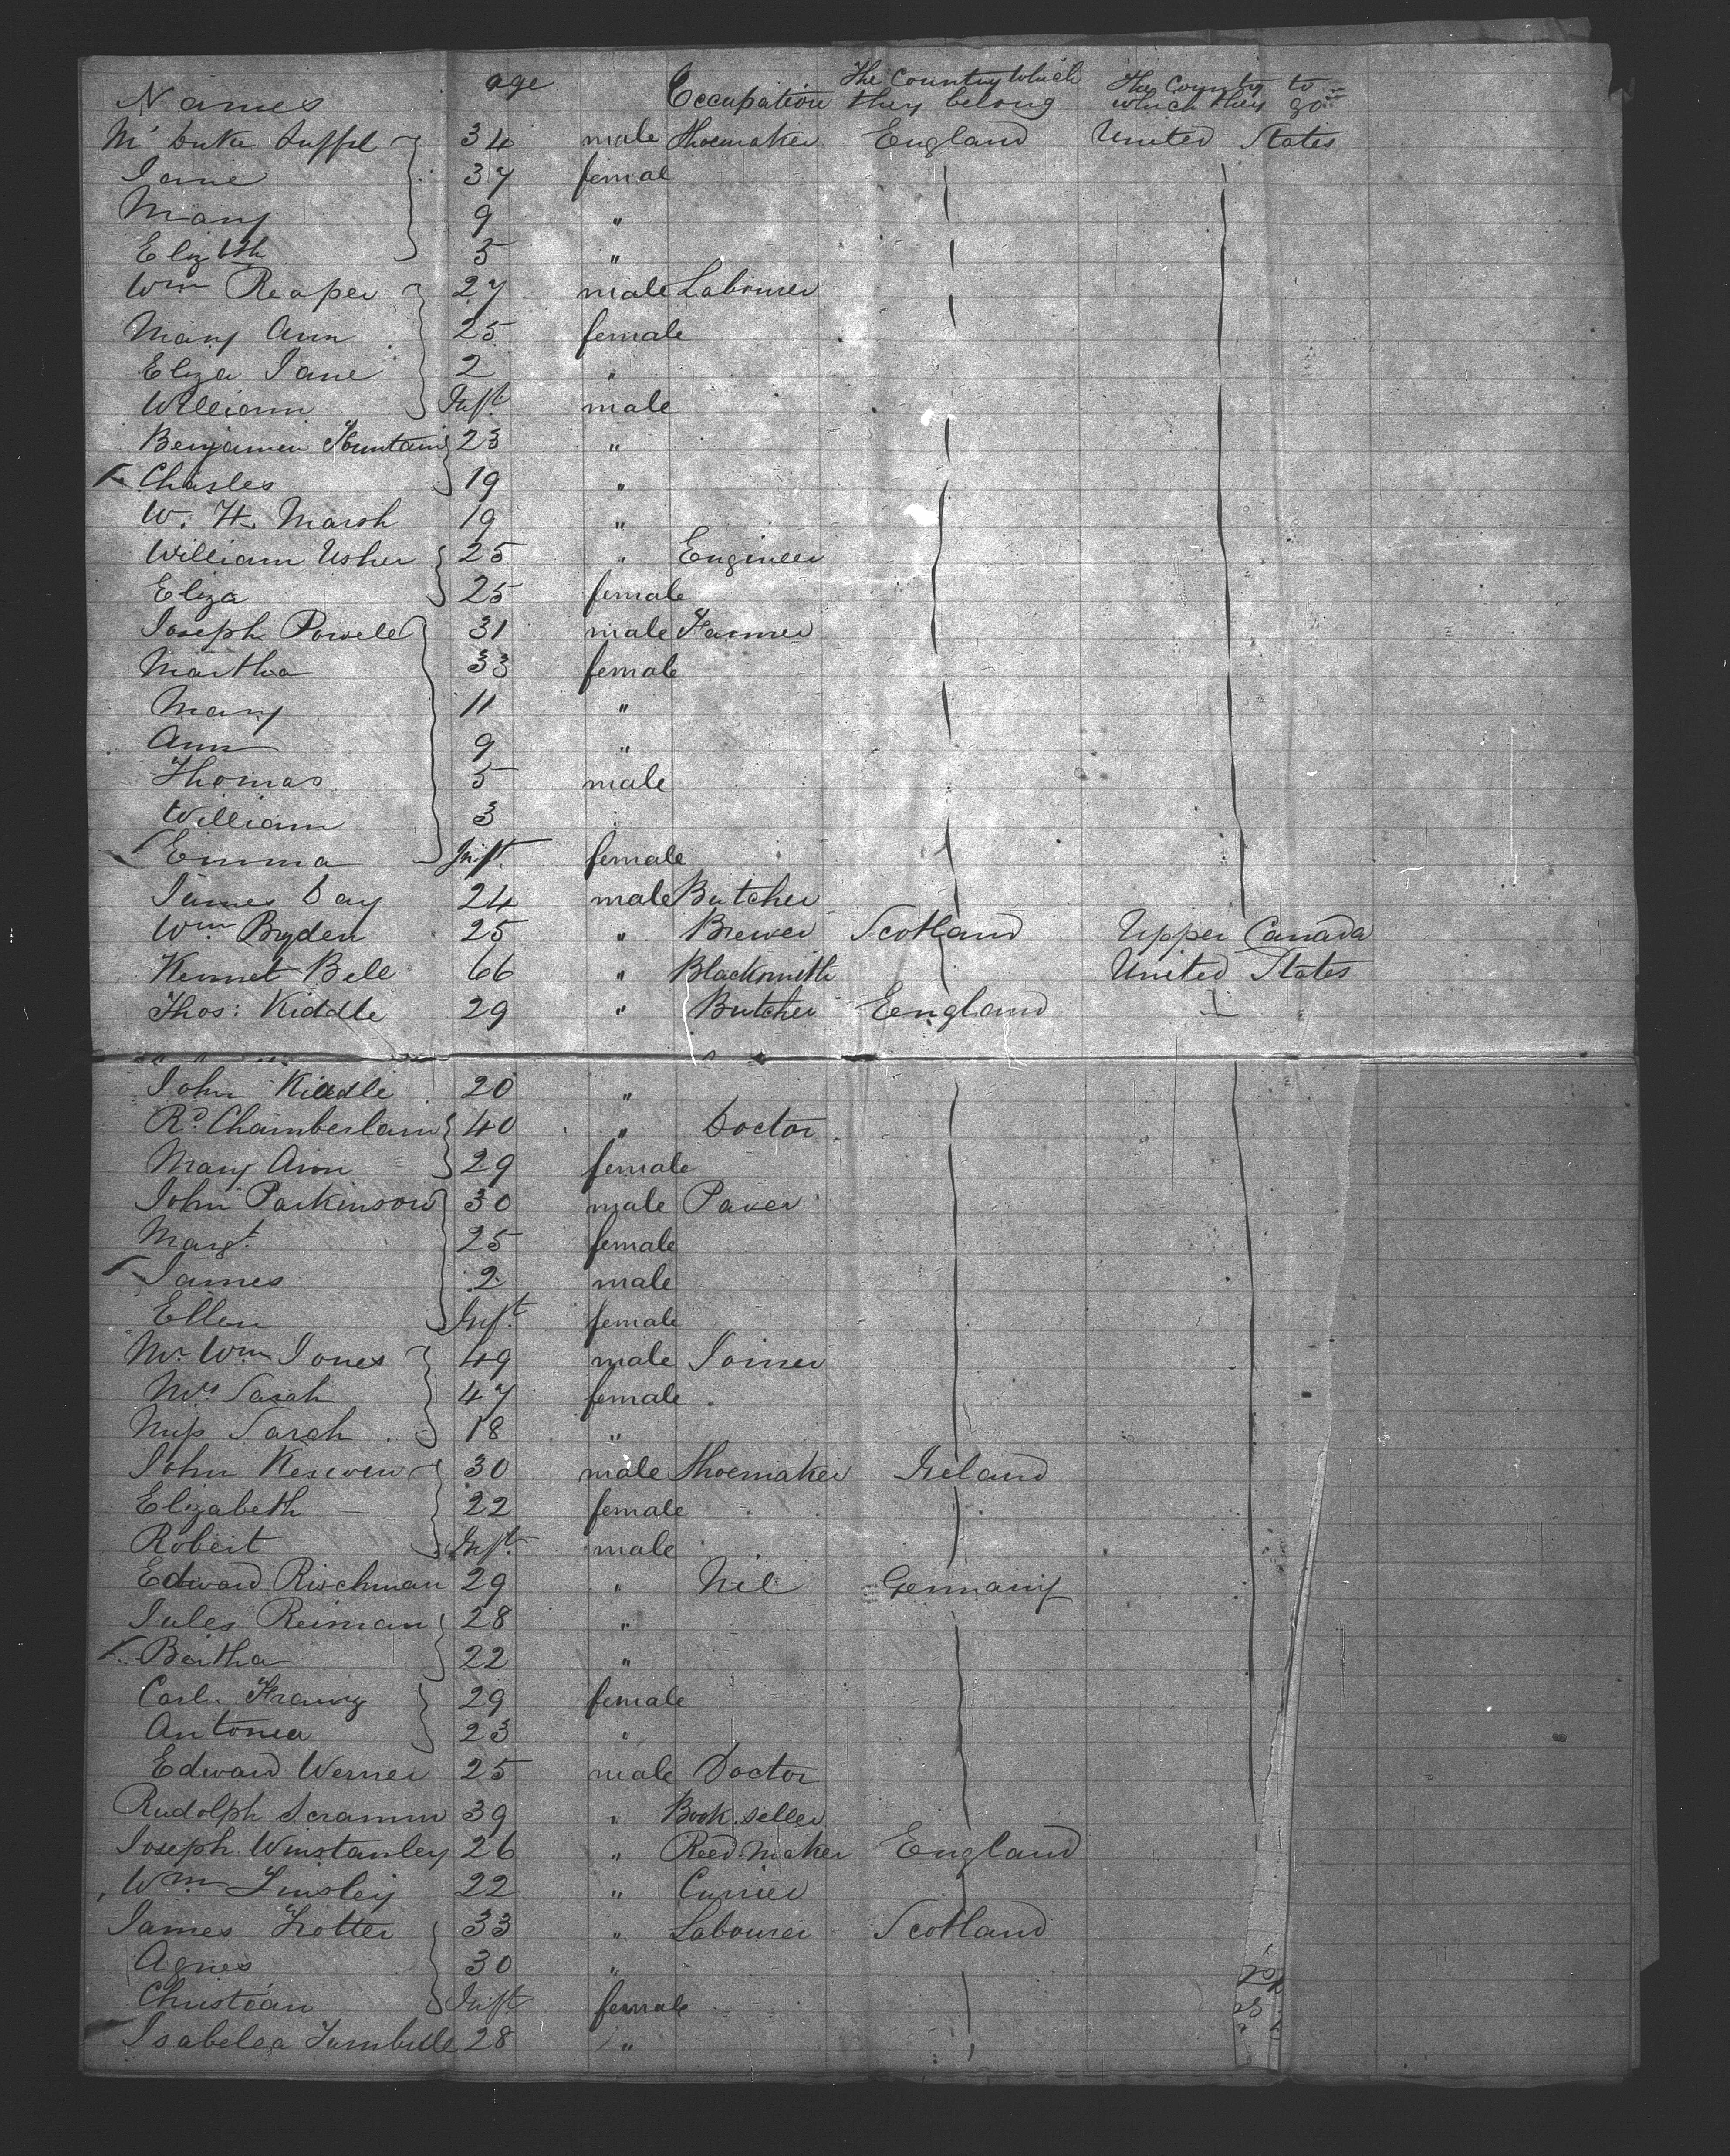 Names age Occupation The Country which they belong The Country to which they go
Mr Duke Suffel 34 male Shoemaker England United States
Jane 37 femal
Mary 9 "
Elizbth 5 "
Wm Reaper 27 male Labourer
Mary Ann 25 female
Eliza Jane 2 "
William Inft male
Benjamen Fountain 23 "
Charles 19 "
W. H. Marsh 19 "
William Usher 25 " Engineer
Eliza 25 female
Joseph Powell 31 male Farmer
Martha 33 female
Mary 11 "
Ann 9 "
Thomas 5 male
William 3
Emma Inft. female
James Day 24 male Butcher
Wm Bryden 25 " Brewer Scotland Upper Canada
Kennet Bell 66 " Blacksmith United States
Thos: Kiddle 29 " Butcher England
John Kiddle 20 "
Rd. Chamberlain 40 " Doctor
Mary Ann 29 female
John Parkinson 30 male Paver
Margt. 25 female
James 2 male
Ellen Inft. female
Mr. Wm Jones 49 male Joiner
Mrs Sarah 47 female
Miss Sarah 18 "
John Kerwen 30 male Shoemaker Ireland
Elizabeth 22 female
Robert Inft. male
Edward Rischman 29 " Nil Germany
Jules Reiman 28 "
Bertha 22 "
Carl Franz 29 female
Antonia 23 "
Edward Werner 25 male Doctor
Rudolph Scramm 39 " Book.seller
Joseph Winstanley 26 " Reed.maker England
Wm Linsley 22 " Currier
James Trotter 33 " Labourer Scotland
Agnes 30 "
Christian Inft female
Isabella Turnbull 28 "